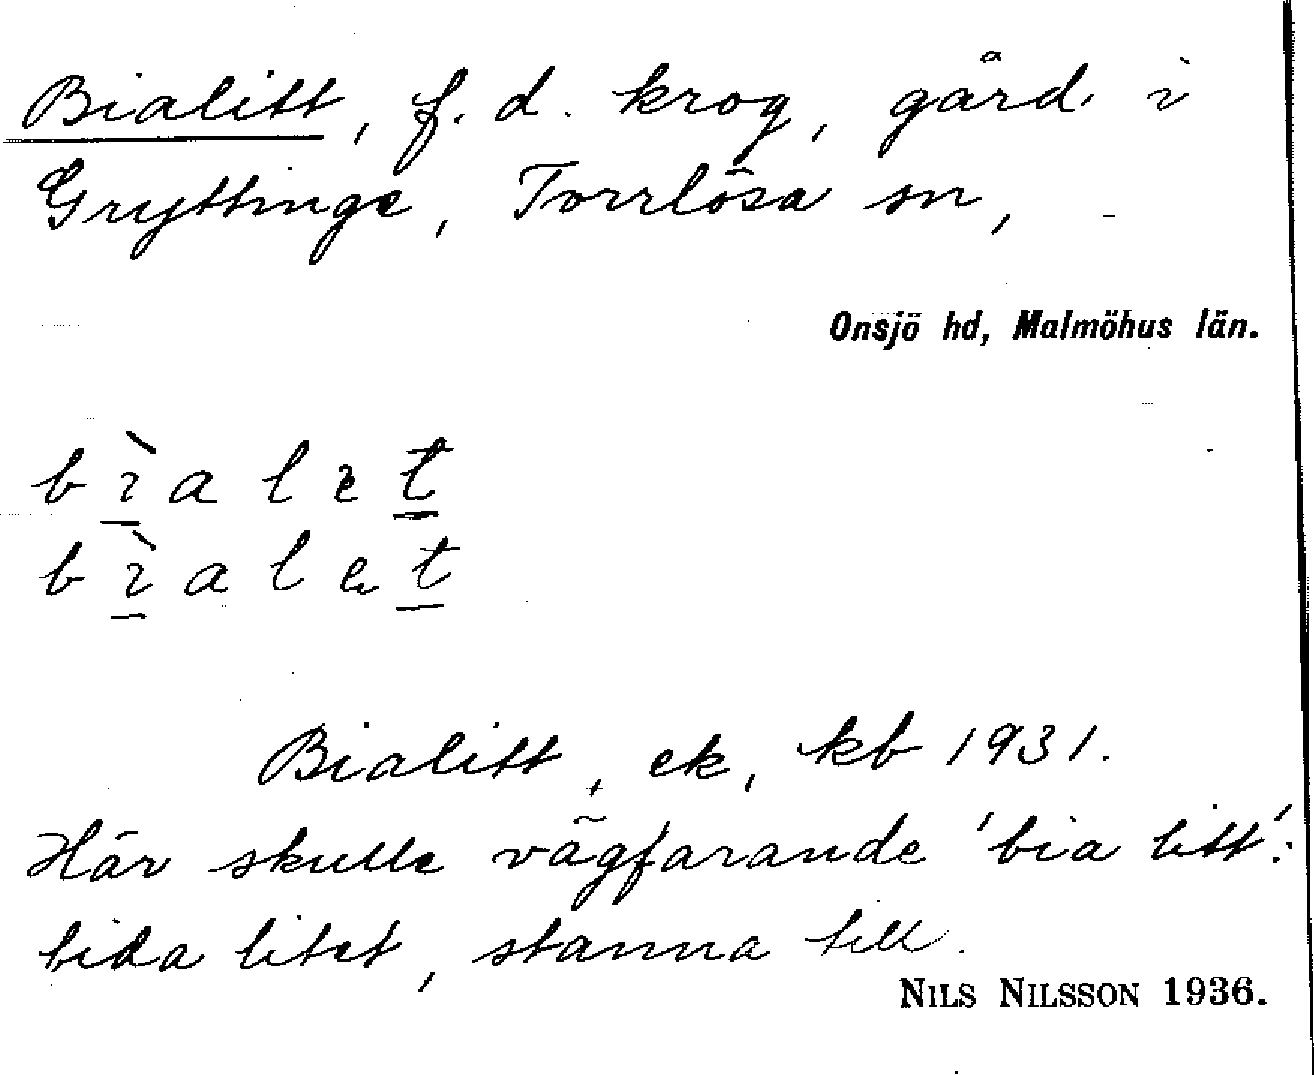 Bialitt, f. d. krog, gård i
Gryttinge, Torrlösa sn,
Onsjö hd, Malmöhus län.
bìalet
bìalet
Bialitt, ek, kb 1931.
Här skulle vägfarande 'bia litt':
bida litet, stanna till.
NILS NILSSON 1936.